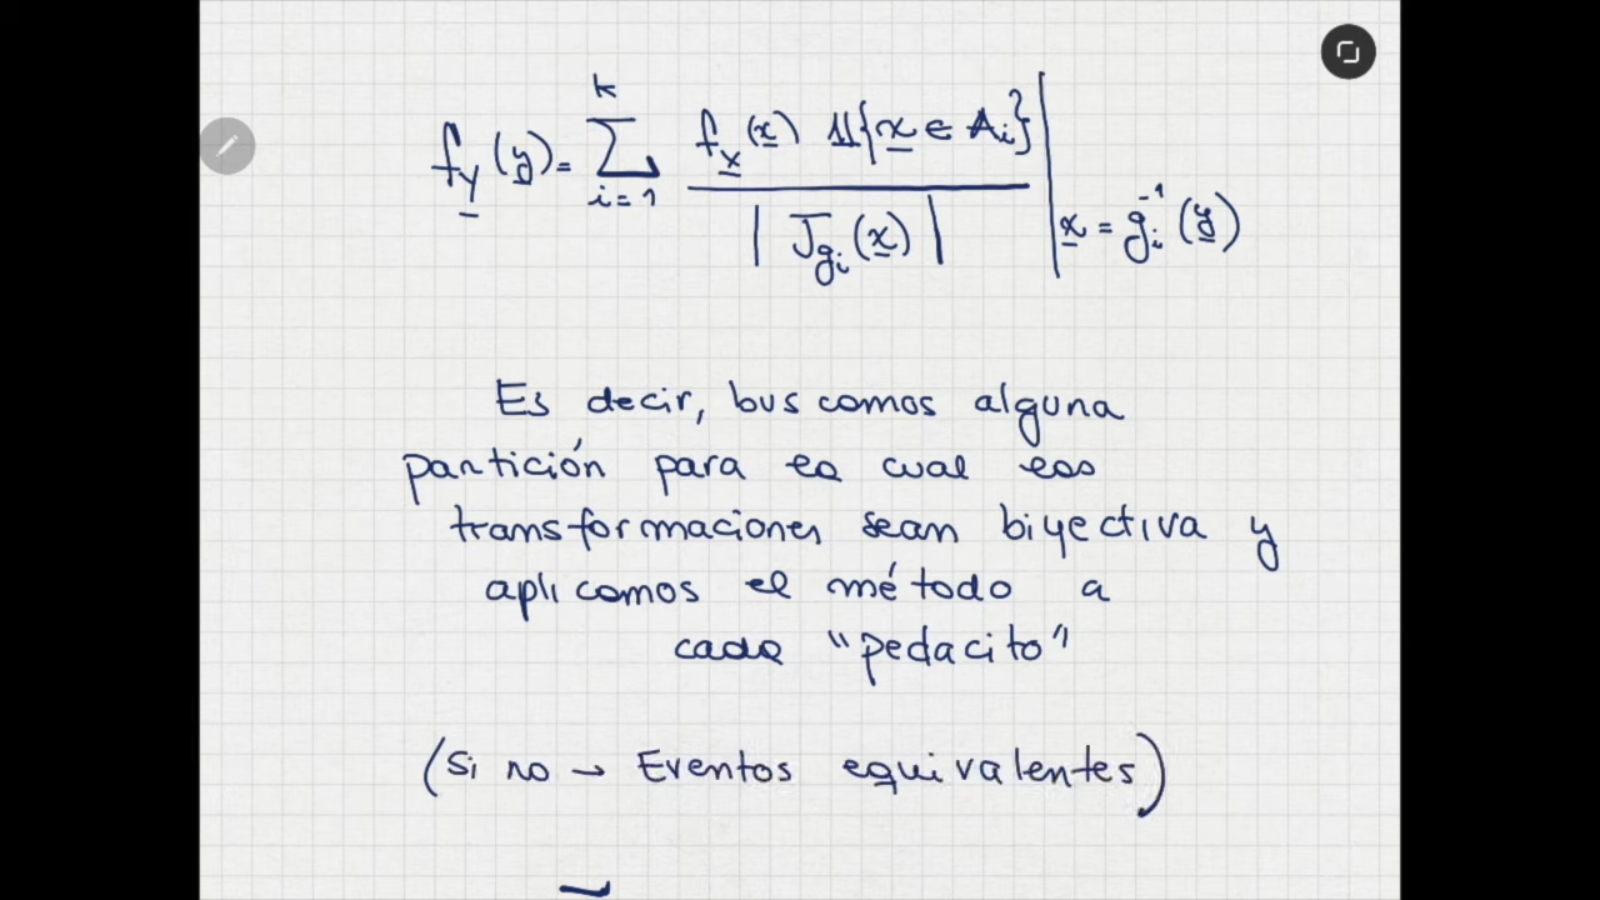 f_Y(y) = \sum_{i=1}^{k} \frac{f_X(x) 𝟙{x ∈ A_i}}{|J_{g_i}(x)|} |_{x = g_i^{-1}(y)}
Es decir, buscamos alguna
partición para la cual las
transformaciones sean biyectiva y
aplicamos el método a
cada "pedacito"
(Si no → Eventos equivalentes)